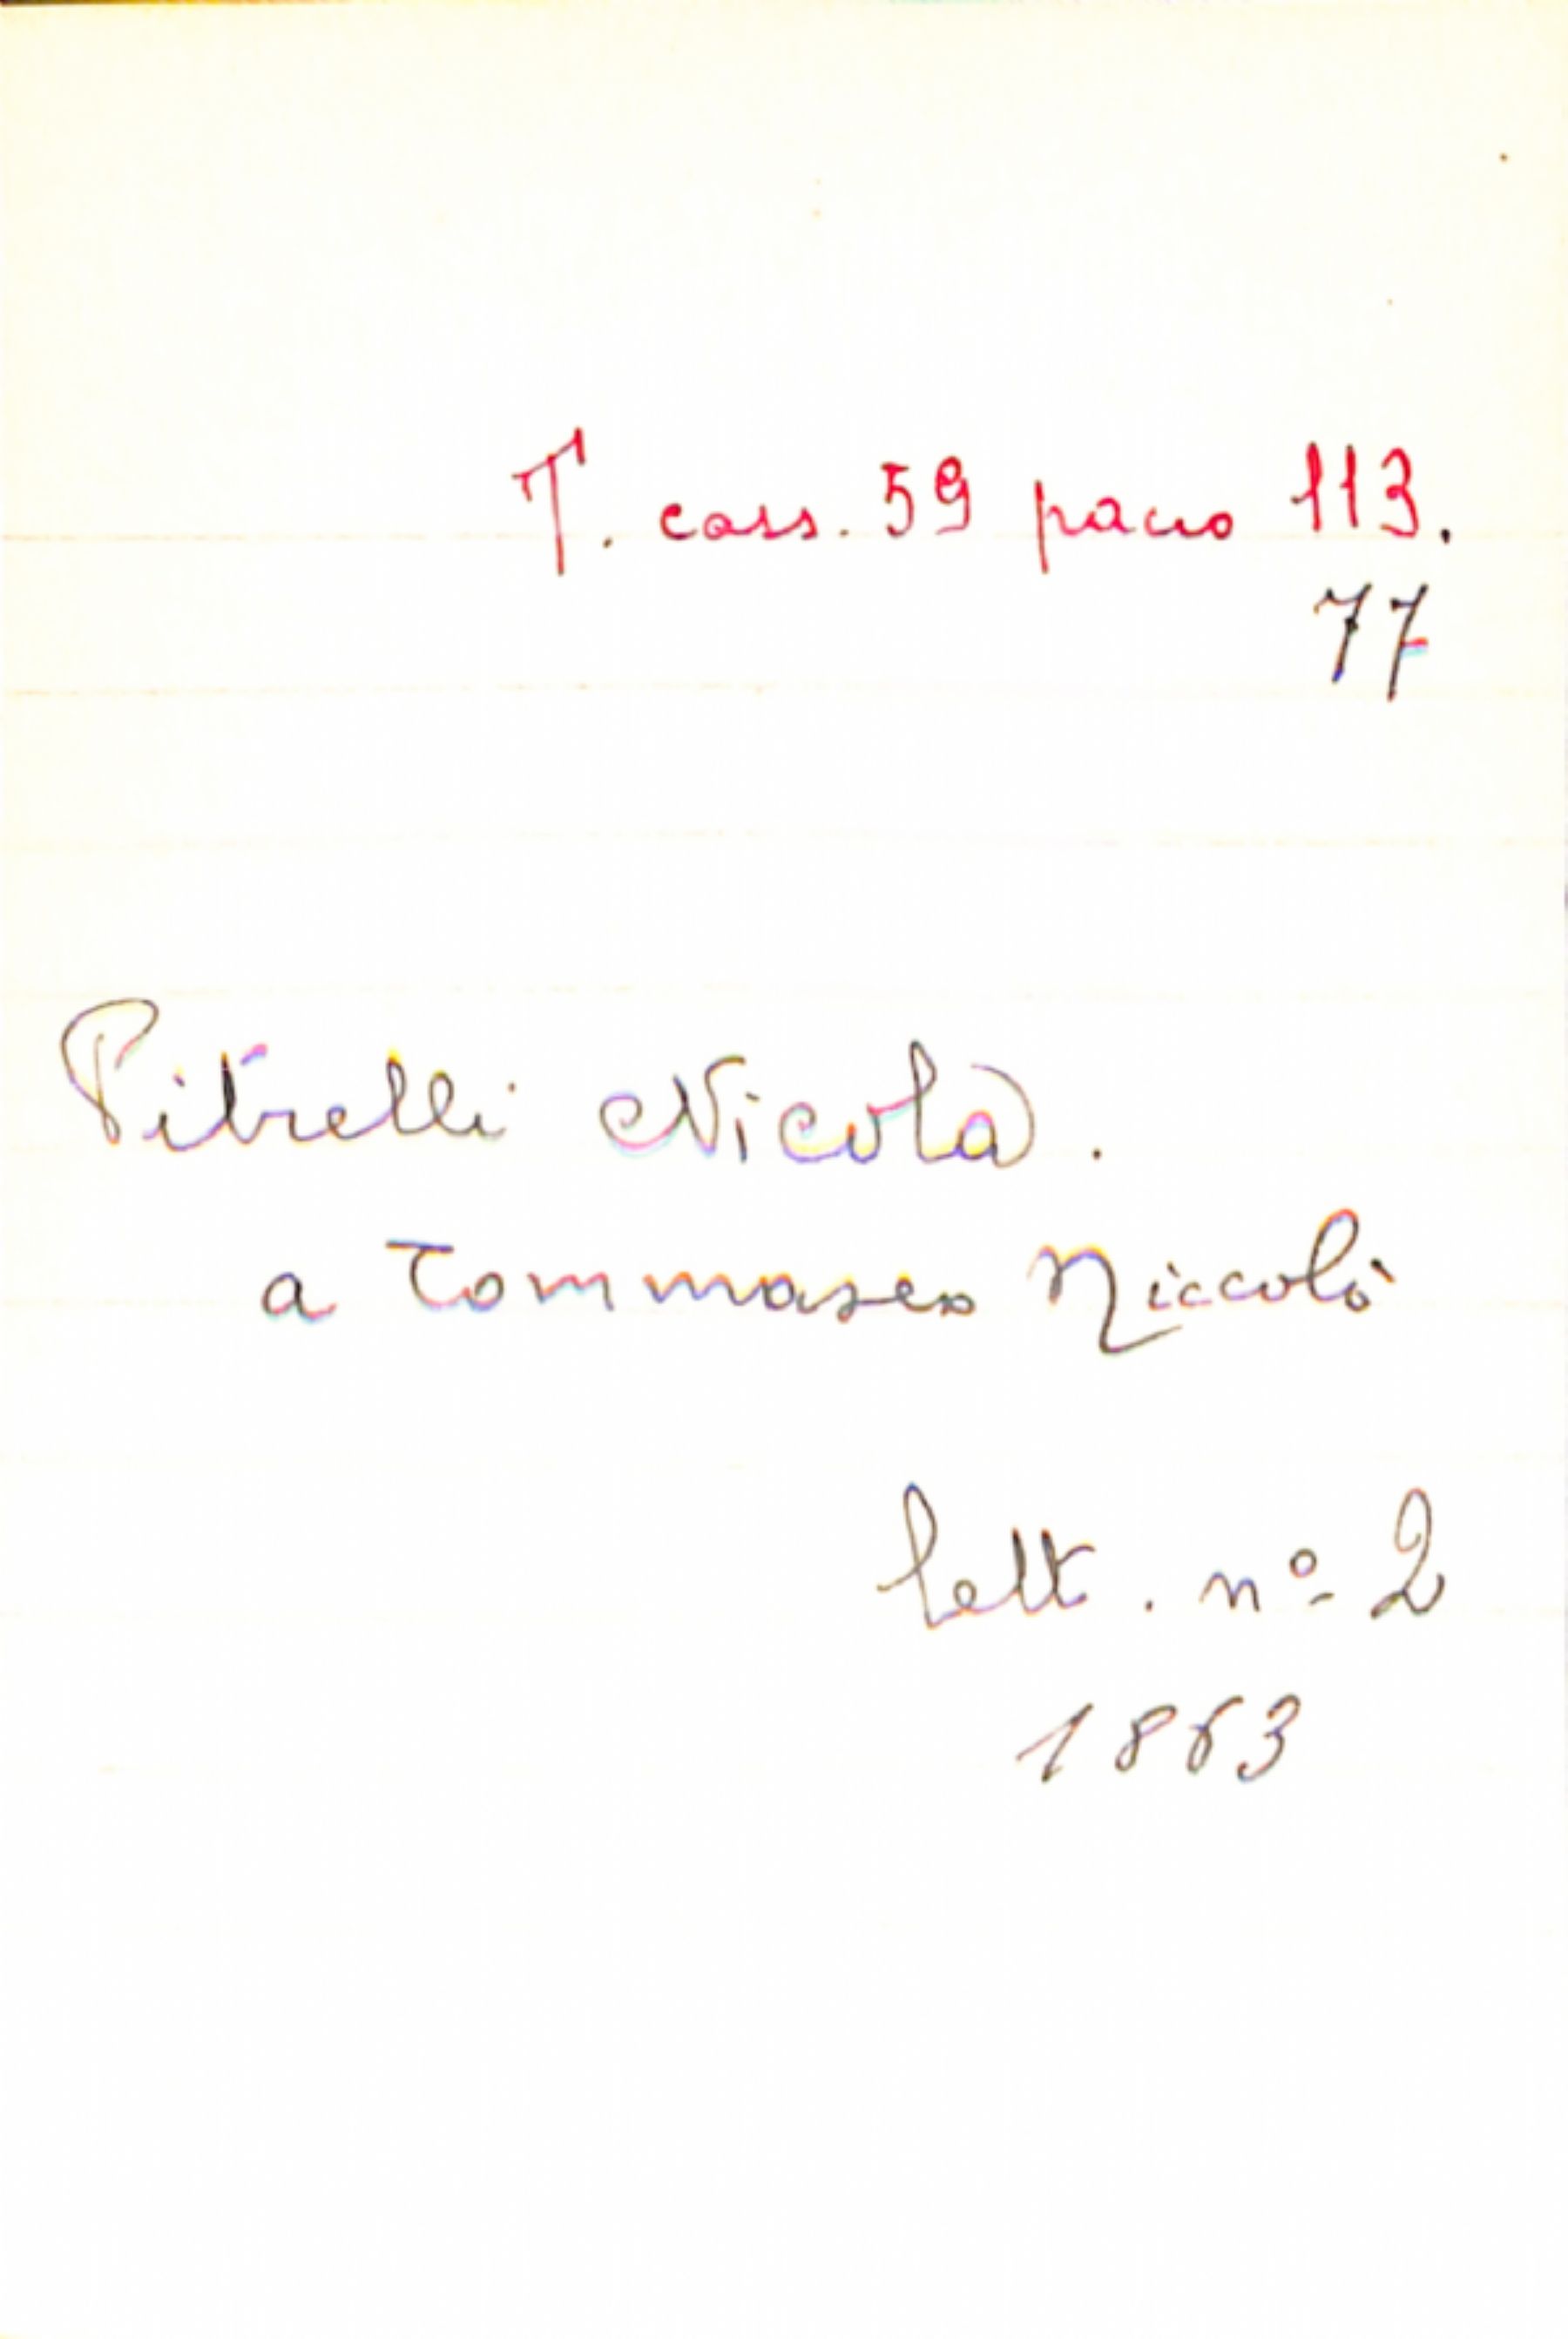 T. cass. 59 pacco 113.
77
Pitrelli Nicola.
a Tommaseo Niccolò
lett. nº 2
1863